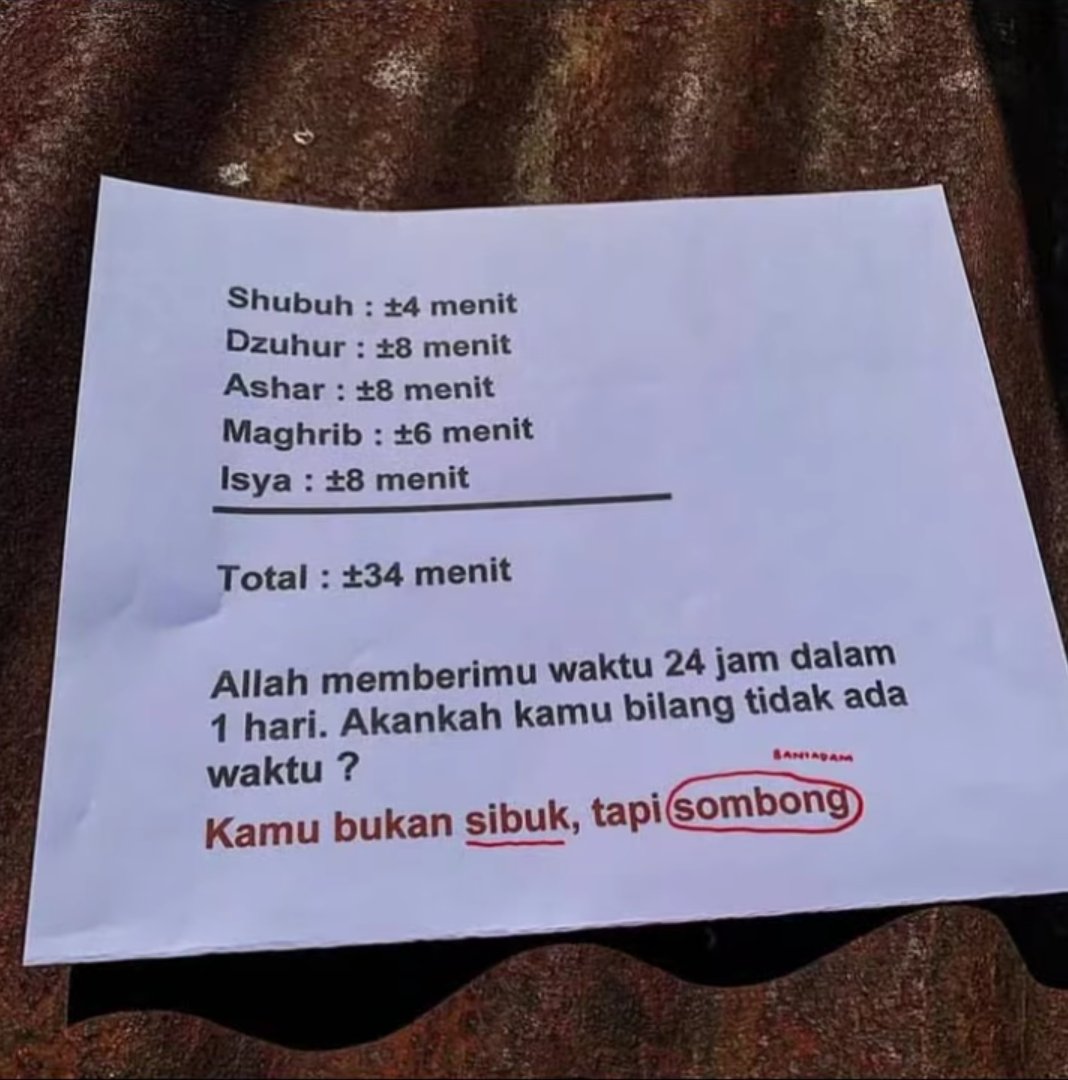 Shubuh : ±4 menit
Dzuhur : ±8 menit
Ashar : ±8 menit
Maghrib : ±6 menit
Isya : ±8 menit
Total : ±34 menit
Allah memberimu waktu 24 jam dalam
1 hari. Akankah kamu bilang tidak ada
waktu ?
BANIADAM
Kamu bukan sibuk, tapi sombong